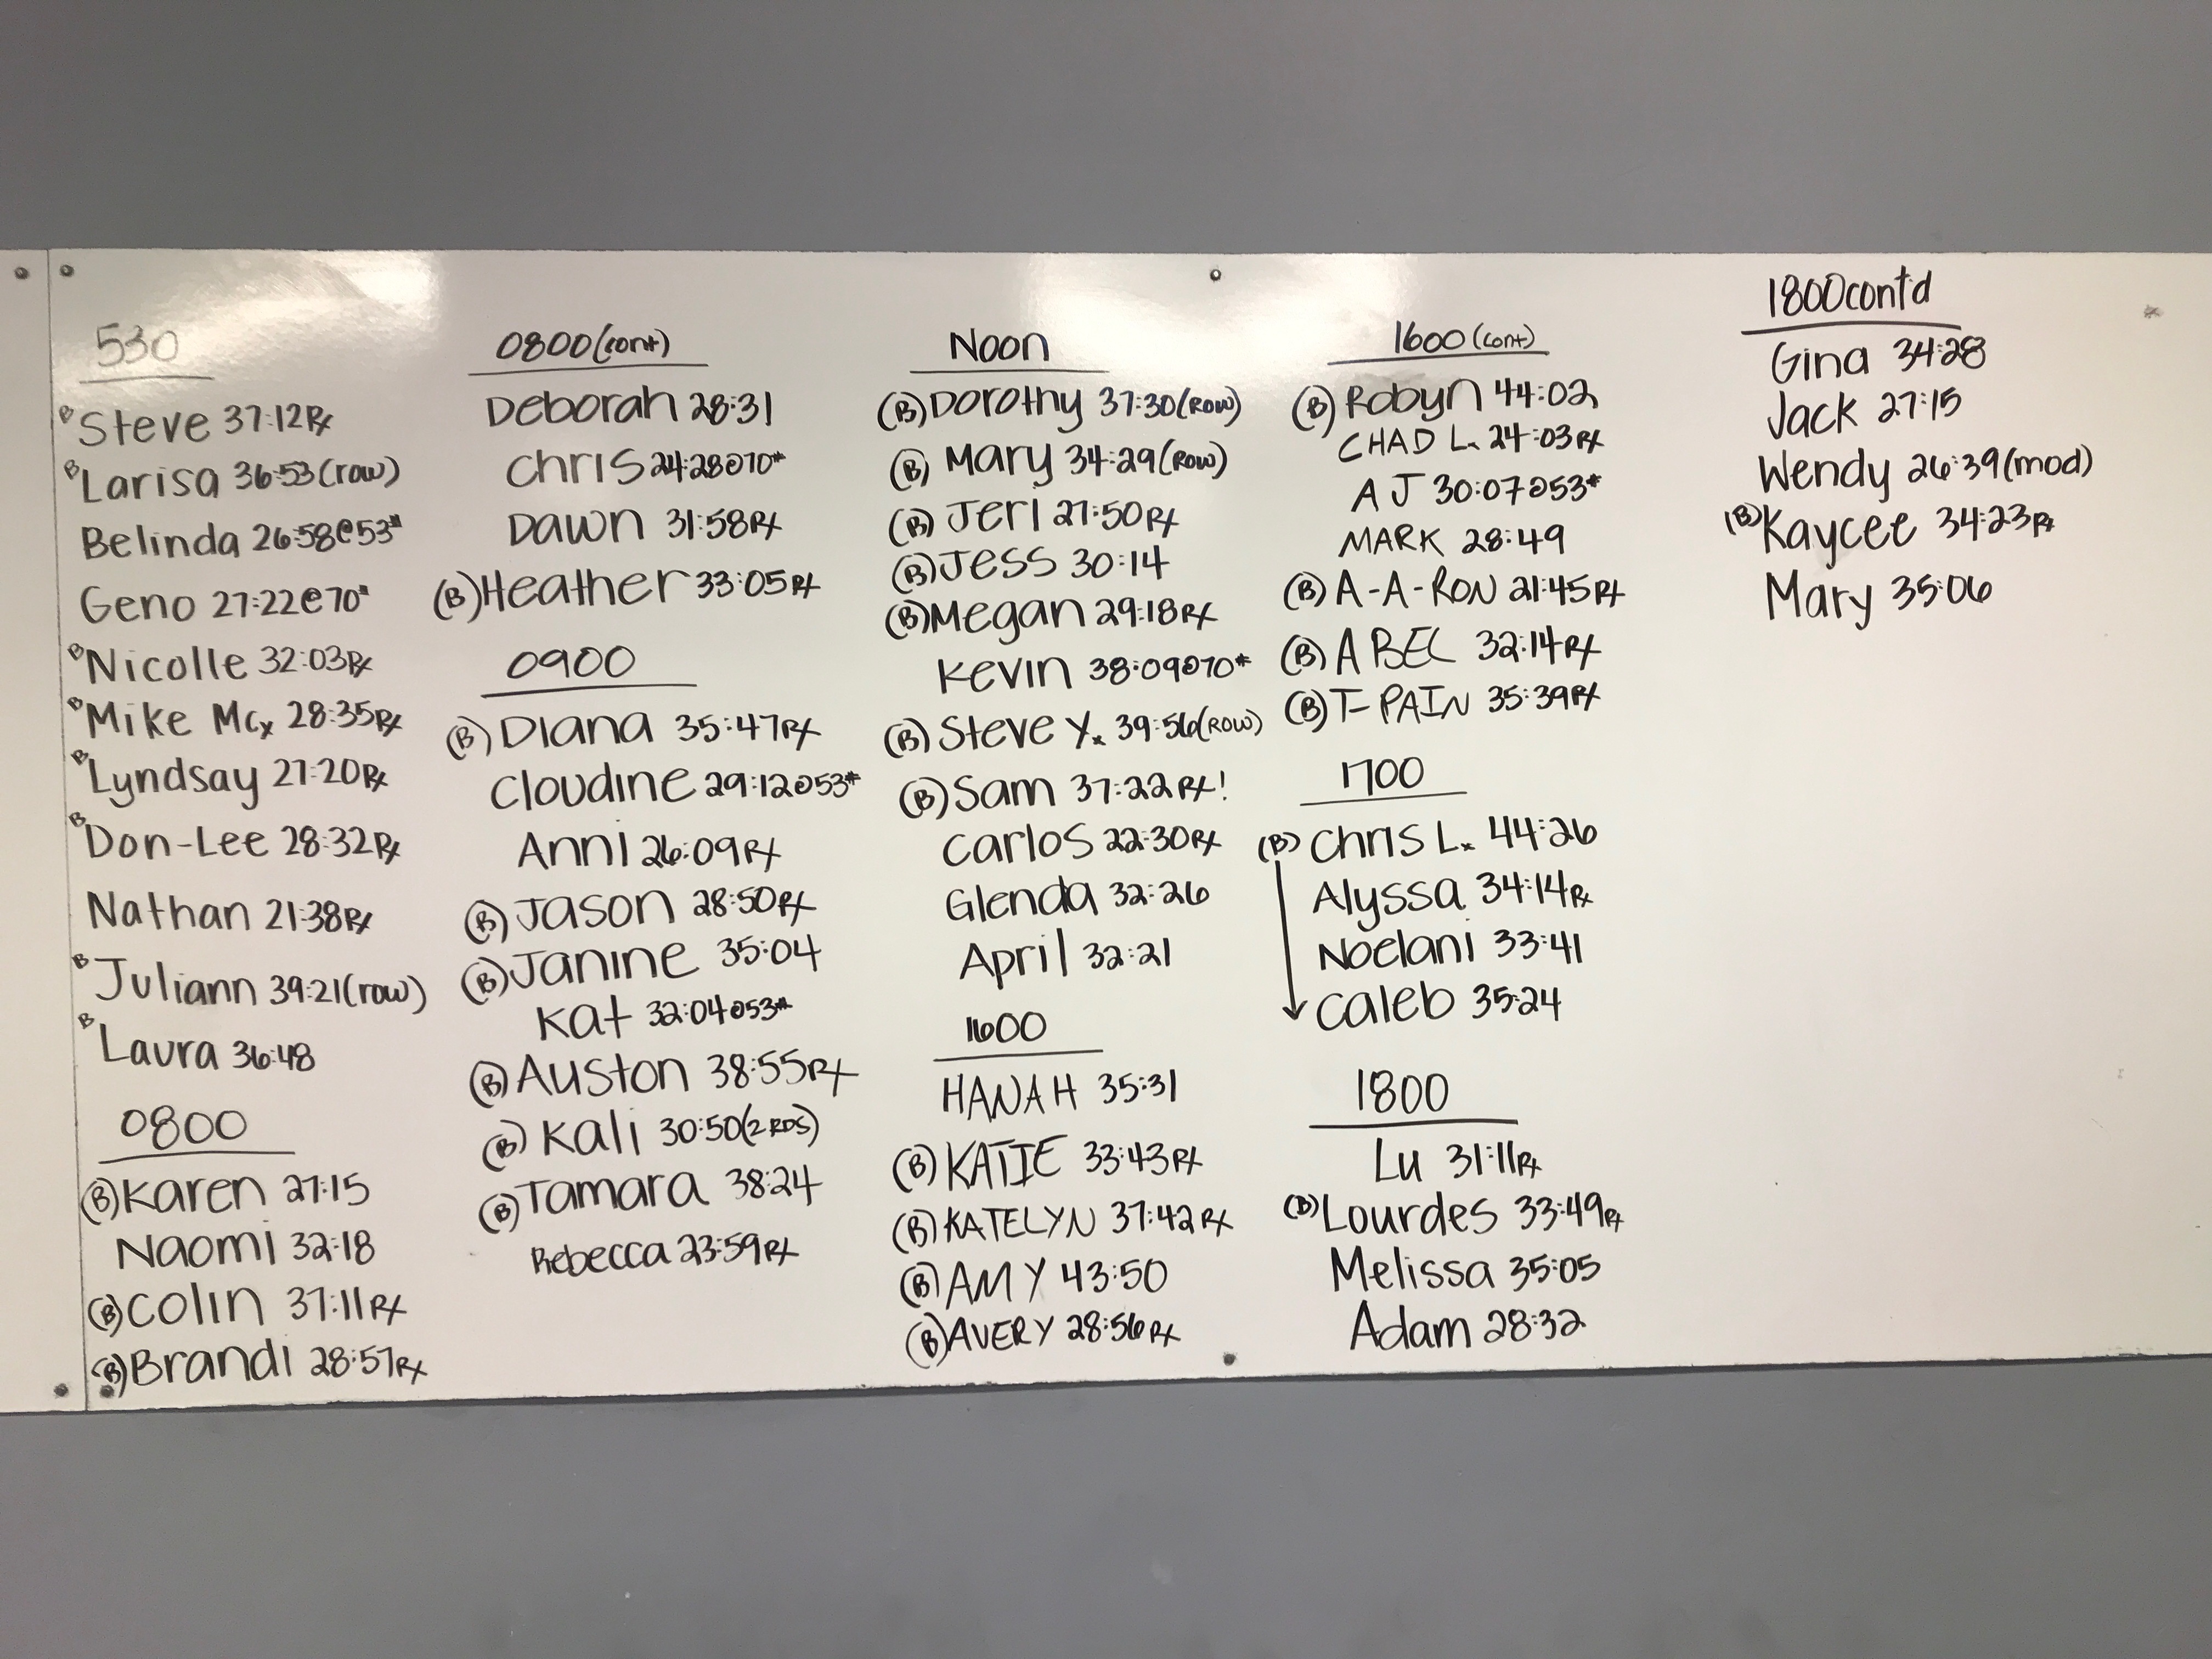 530
B Steve 37:12 Rx
B Larisa 36:53 (row)
Belinda 26:58 @ 53#
Geno 27:22 @ 70#
B Nicolle 32:03 Rx
B Mike Mc. 28:35 Rx
B Lyndsay 27:20 Rx
B Don-Lee 28:32 Rx
Nathan 21:38 Rx
B Juliann 39:21 (row)
B Laura 36:48
0800
(B) Karen 27:15
Naomi 32:18
(B) Colin 37:11 Rx
(B) Brandi 28:57 Rx
0800 (cont)
Deborah 28:31
Chris 24:28 @ 70#
Dawn 31:58 Rx
(B) Heather 33:05 Rx
0900
(B) Diana 35:47 Rx
Cloudine 29:12 @ 53#
Anni 26:09 Rx
(B) Jason 28:50 Rx
(B) Janine 35:04
Kat 32:04 @ 53#
(B) Auston 38:55 Rx
(B) Kali 30:50 (2 RDS)
(B) Tamara 38:24
Rebecca 23:59 Rx
Noon
(B) Dorothy 37:30 (ROW)
(B) Mary 34:29 (ROW)
(B) Jeri 27:50 Rx
(B) Jess 30:14
(B) Megan 29:18 Rx
Kevin 38:09 @ 70#
(B) Steve Y. 39:56 (ROW)
(B) Sam 37:22 Rx!
Carlos 22:30 Rx
Glenda 32:26
April 32:21
1600
HANAH 35:31
(B) KATIE 33:43 Rx
(B) KATELYN 37:42 Rx
(B) AMY 43:50
(B) AVERY 28:56 Rx
1600 (cont)
(B) Robyn 44:02
CHAD L. 24:03 Rx
AJ 30:07 @ 53#
MARK 28:49
(B) A-A-RON 21:45 Rx
(B) ABEL 32:14 Rx
(B) T-PAIN 35:39 Rx
1700
(B) Chris L. 44:26
Alyssa 34:14 Rx
Noelani 33:41
Caleb 35:24
1800
Lu 31:11 Rx
(B) Lourdes 33:49 Rx
Melissa 35:05
Adam 28:32
1800 cont'd
Gina 34:28
Jack 27:15
Wendy 26:39 (mod)
(B) Kaycee 34:23 Rx
Mary 35:06